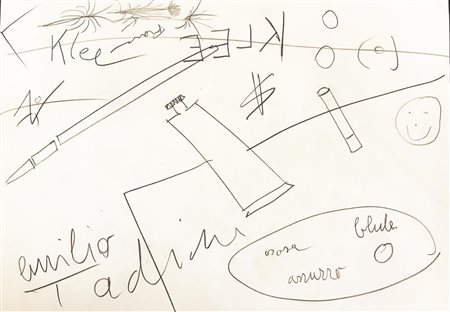 Klee KLEE
$
emilio
Tadini
rosa blu
azzurro